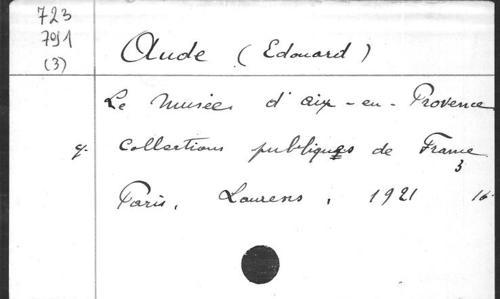 723
791
(3)
Aude (Edouard)
Le Musée d'aix-en-Provence
Collections publiques de France
3
Paris, Laurens, 1921